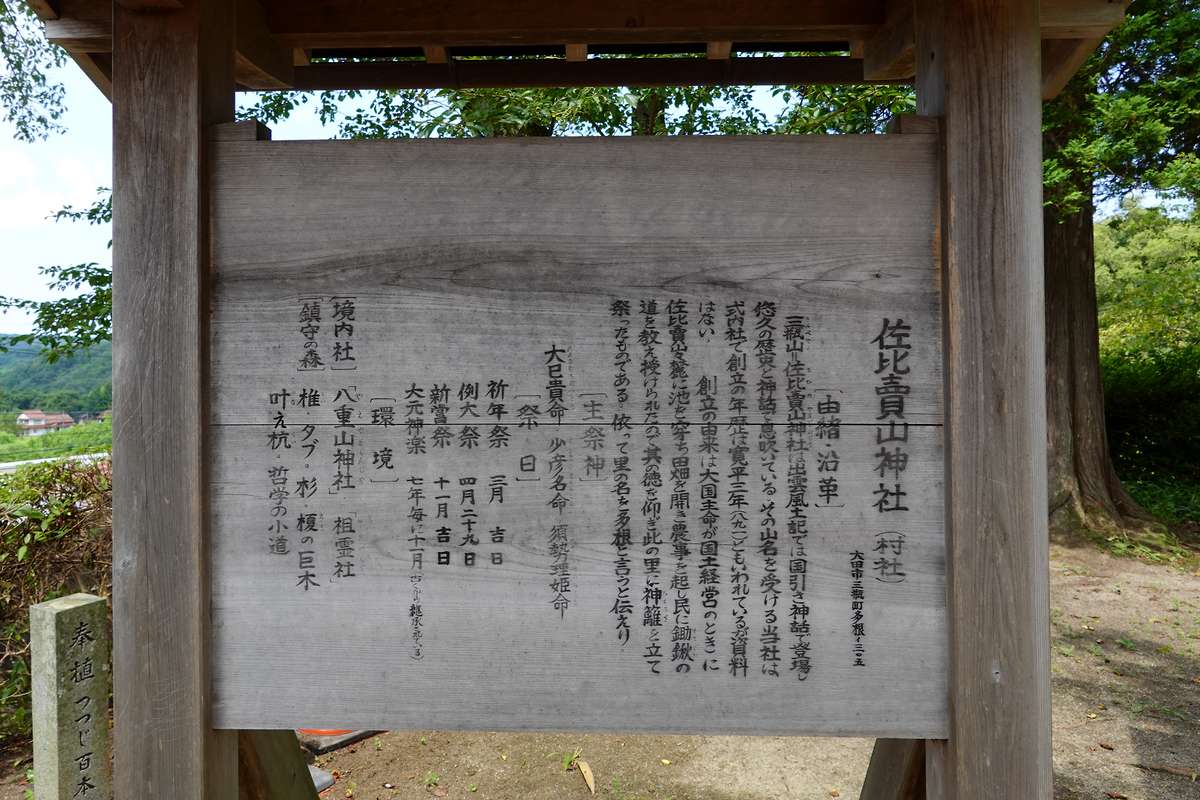 佐比賣山神社 (村社)
大田市三瓶町多根イ三〇五
〔由緒・沿革〕
三瓶山=佐比賣山神社は出雲風土記では国引き神話で登場し
悠久の歴史と神話を息吹いている。その山名を受ける当社は
式内社で創立の年歴は寛平三年(八九一)ともいわれているが資料
はない 創立の由来は大国主命が国土経営のときに
佐比賣山々麓に池を穿ち田畑を開き農事を起し民に鋤鍬の
道を教え授けられたので其の徳を仰ぎ此の里に神籬を立て
祭ったものである 依って里の名を多根と言うと伝えり
〔主祭神〕
大已貴命 少彦名命 須勢理姫命
〔祭日〕
祈年祭 三月 吉日
例大祭 四月二十九日
新嘗祭 十一月吉日
大元神楽 七年毎に十一月
〔環境〕
〔境内社〕「八重山神社」「祖霊社」
〔鎮守の森〕椎。タブ。杉。榎の巨木
叶え杭。哲学の小道
奉植つつじ百本